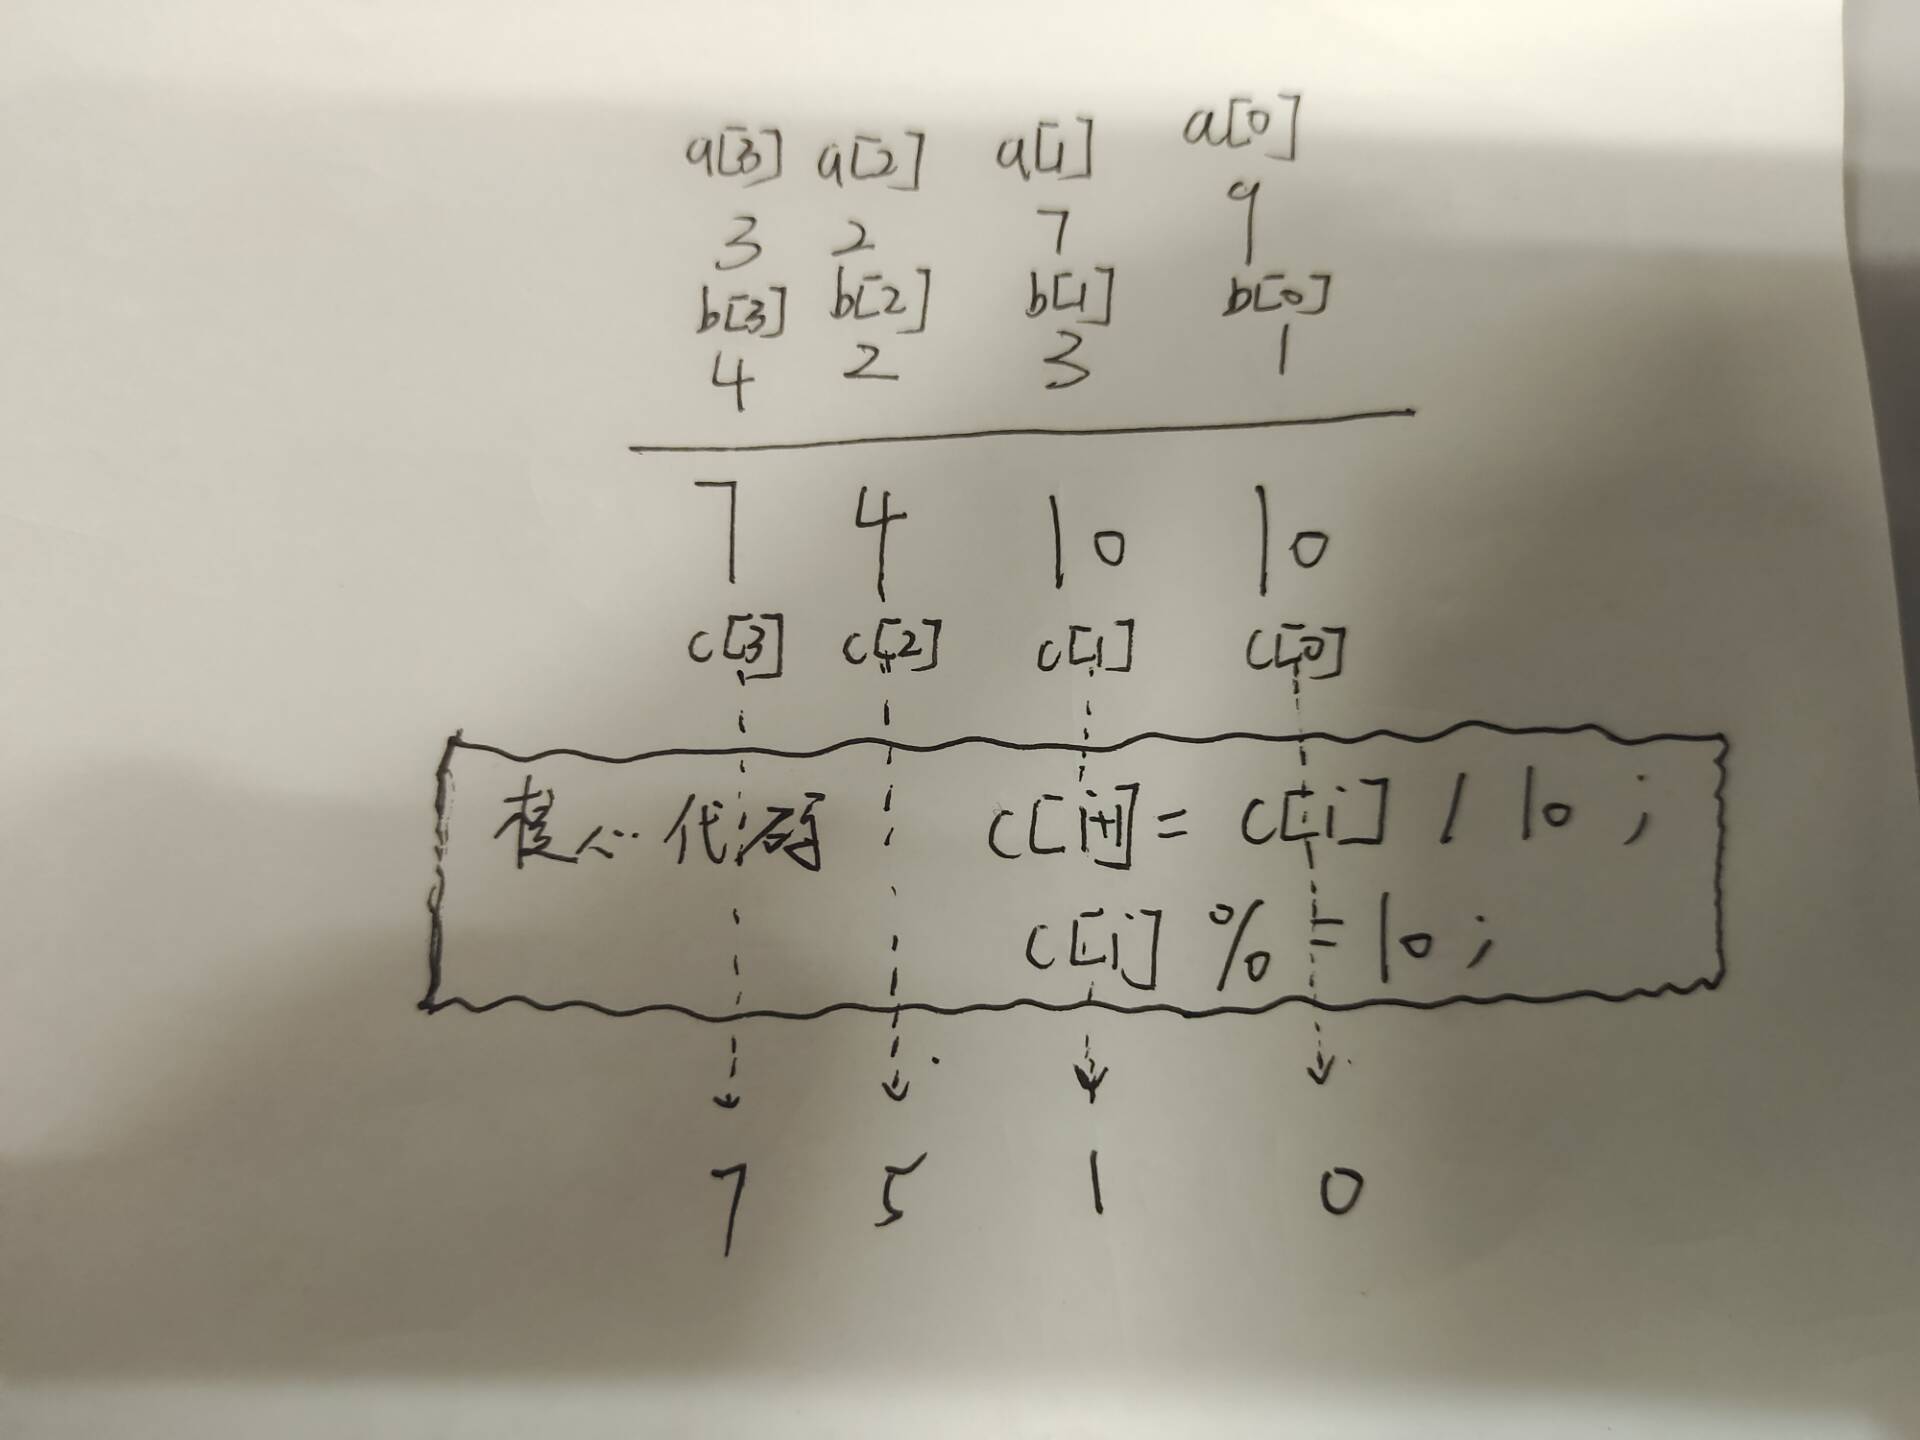 a[3] a[2] a[1] a[0]
3 2 7 9
b[3] b[2] b[1] b[0]
4 2 3 1
7 4 10 10
c[3] c[2] c[1] c[0]
核心代码 c[i+1] = c[i] / 10 ;
c[i] % = 10 ;
7 5 1 0